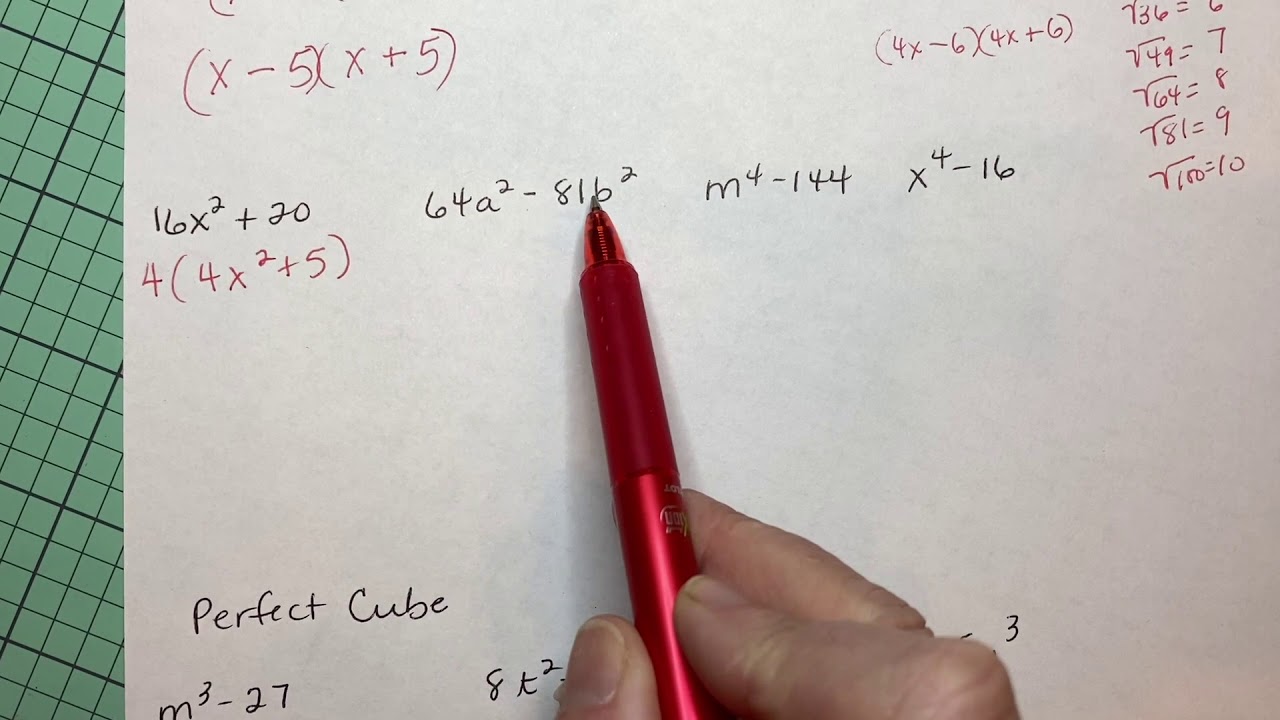 (x - 5)(x + 5)
(4x - 6)(4x + 6)
√36 = 6
√49 = 7
√64 = 8
√81 = 9
√100 = 10
16x² + 20
4(4x² + 5)
64a² - 81b²
m⁴ - 144
x⁴ - 16
Perfect Cube
m³ - 27
8t²
3